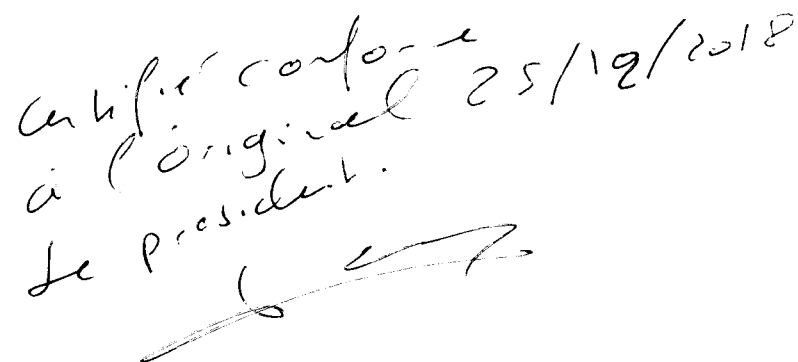 Certifié conforme
à l'original 25/10/2018
Le président.